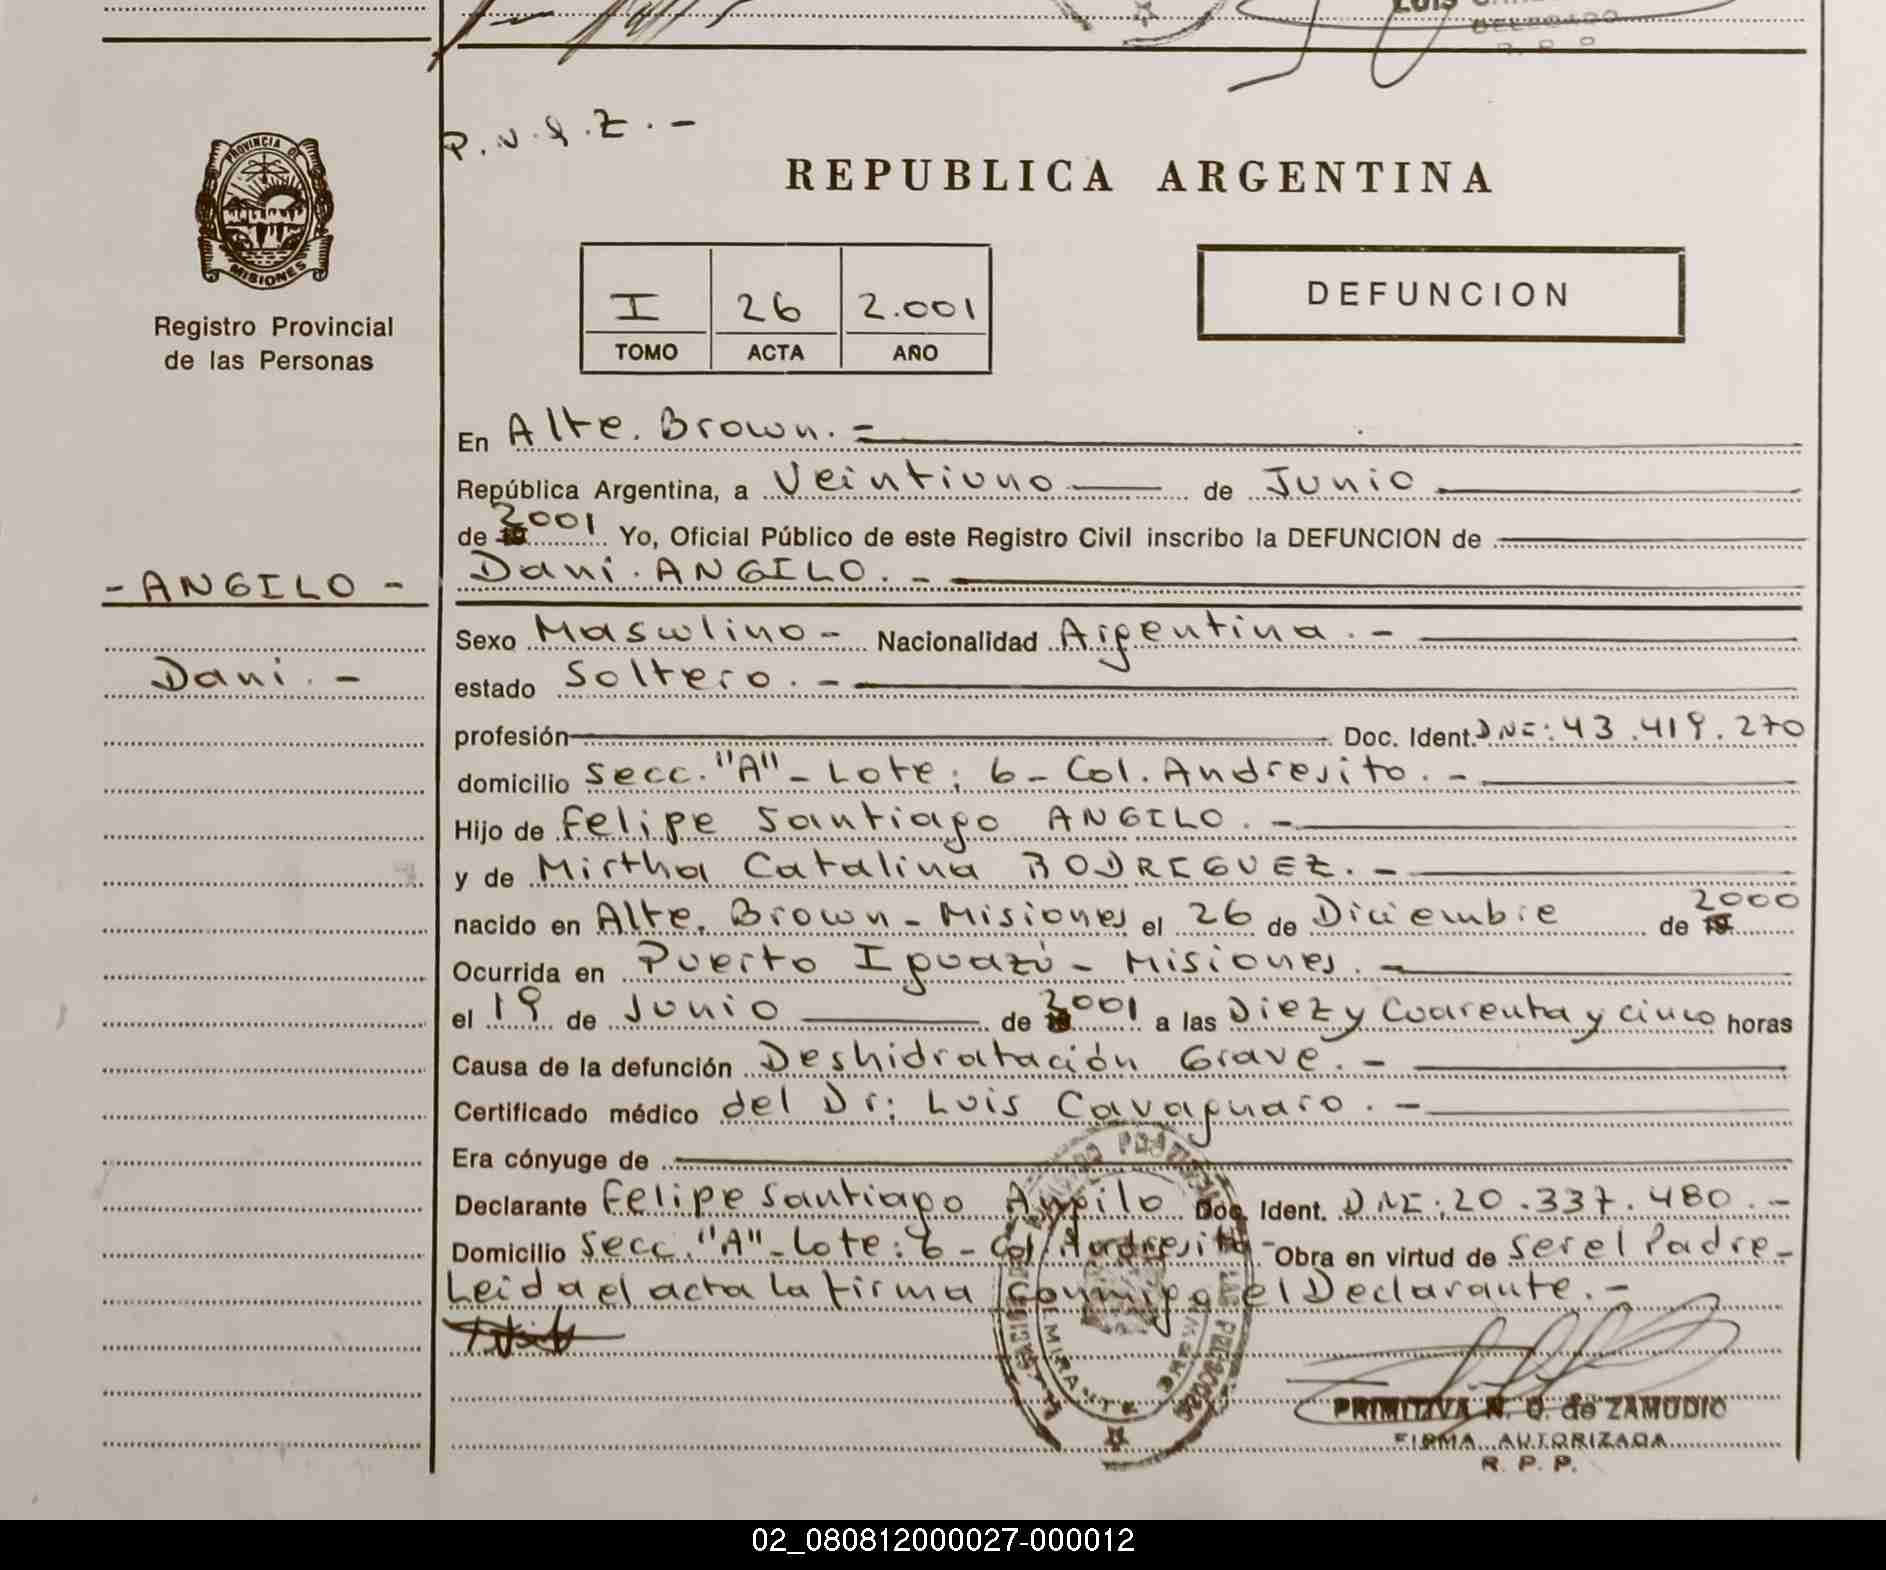 LUIS
DELEGADO
R. P. P.
P.V.I.Z. -
PROVINCIA DE
MISIONES
REPUBLICA ARGENTINA
Registro Provincial
de las Personas
I 26 2.001
TOMO ACTA AÑO
DEFUNCION
En Alte. Brown. -
República Argentina, a Veintiuno de Junio
de 2001 Yo, Oficial Público de este Registro Civil inscribo la DEFUNCION de
- ANGILO - Dani. ANGILO. -
Sexo Masculino - Nacionalidad Argentina. -
Dani. - estado Soltero. -
profesión Doc. Ident. DNI: 43.419.270
domicilio Secc. "A" - Lote: 6 - Col. Andresito. -
Hijo de Felipe Santiago ANGILO. -
y de Mirtha Catalina RODRIGUEZ. -
nacido en Alte. Brown - Misiones el 26 de Diciembre de 2000
Ocurrida en Puerto Iguazú - Misiones. -
el 19 de Junio de 2001 a las Diez y Cuarenta y cinco horas
Causa de la defunción Deshidratación Grave. -
Certificado médico del Dr: Luis Cavagnaro. -
Era cónyuge de
Declarante Felipe Santiago Angilo Doc. Ident. DNI: 20.337.480. -
Domicilio Secc. "A" - Lote: 6 - Col. Andresito - Obra en virtud de Ser el Padre -
Leida el acta la firma conmigo el Declarante. -
PRIMITIVA N. O. de ZAMUDIO
FIRMA AUTORIZADA
R. P. P.
02_080812000027-000012